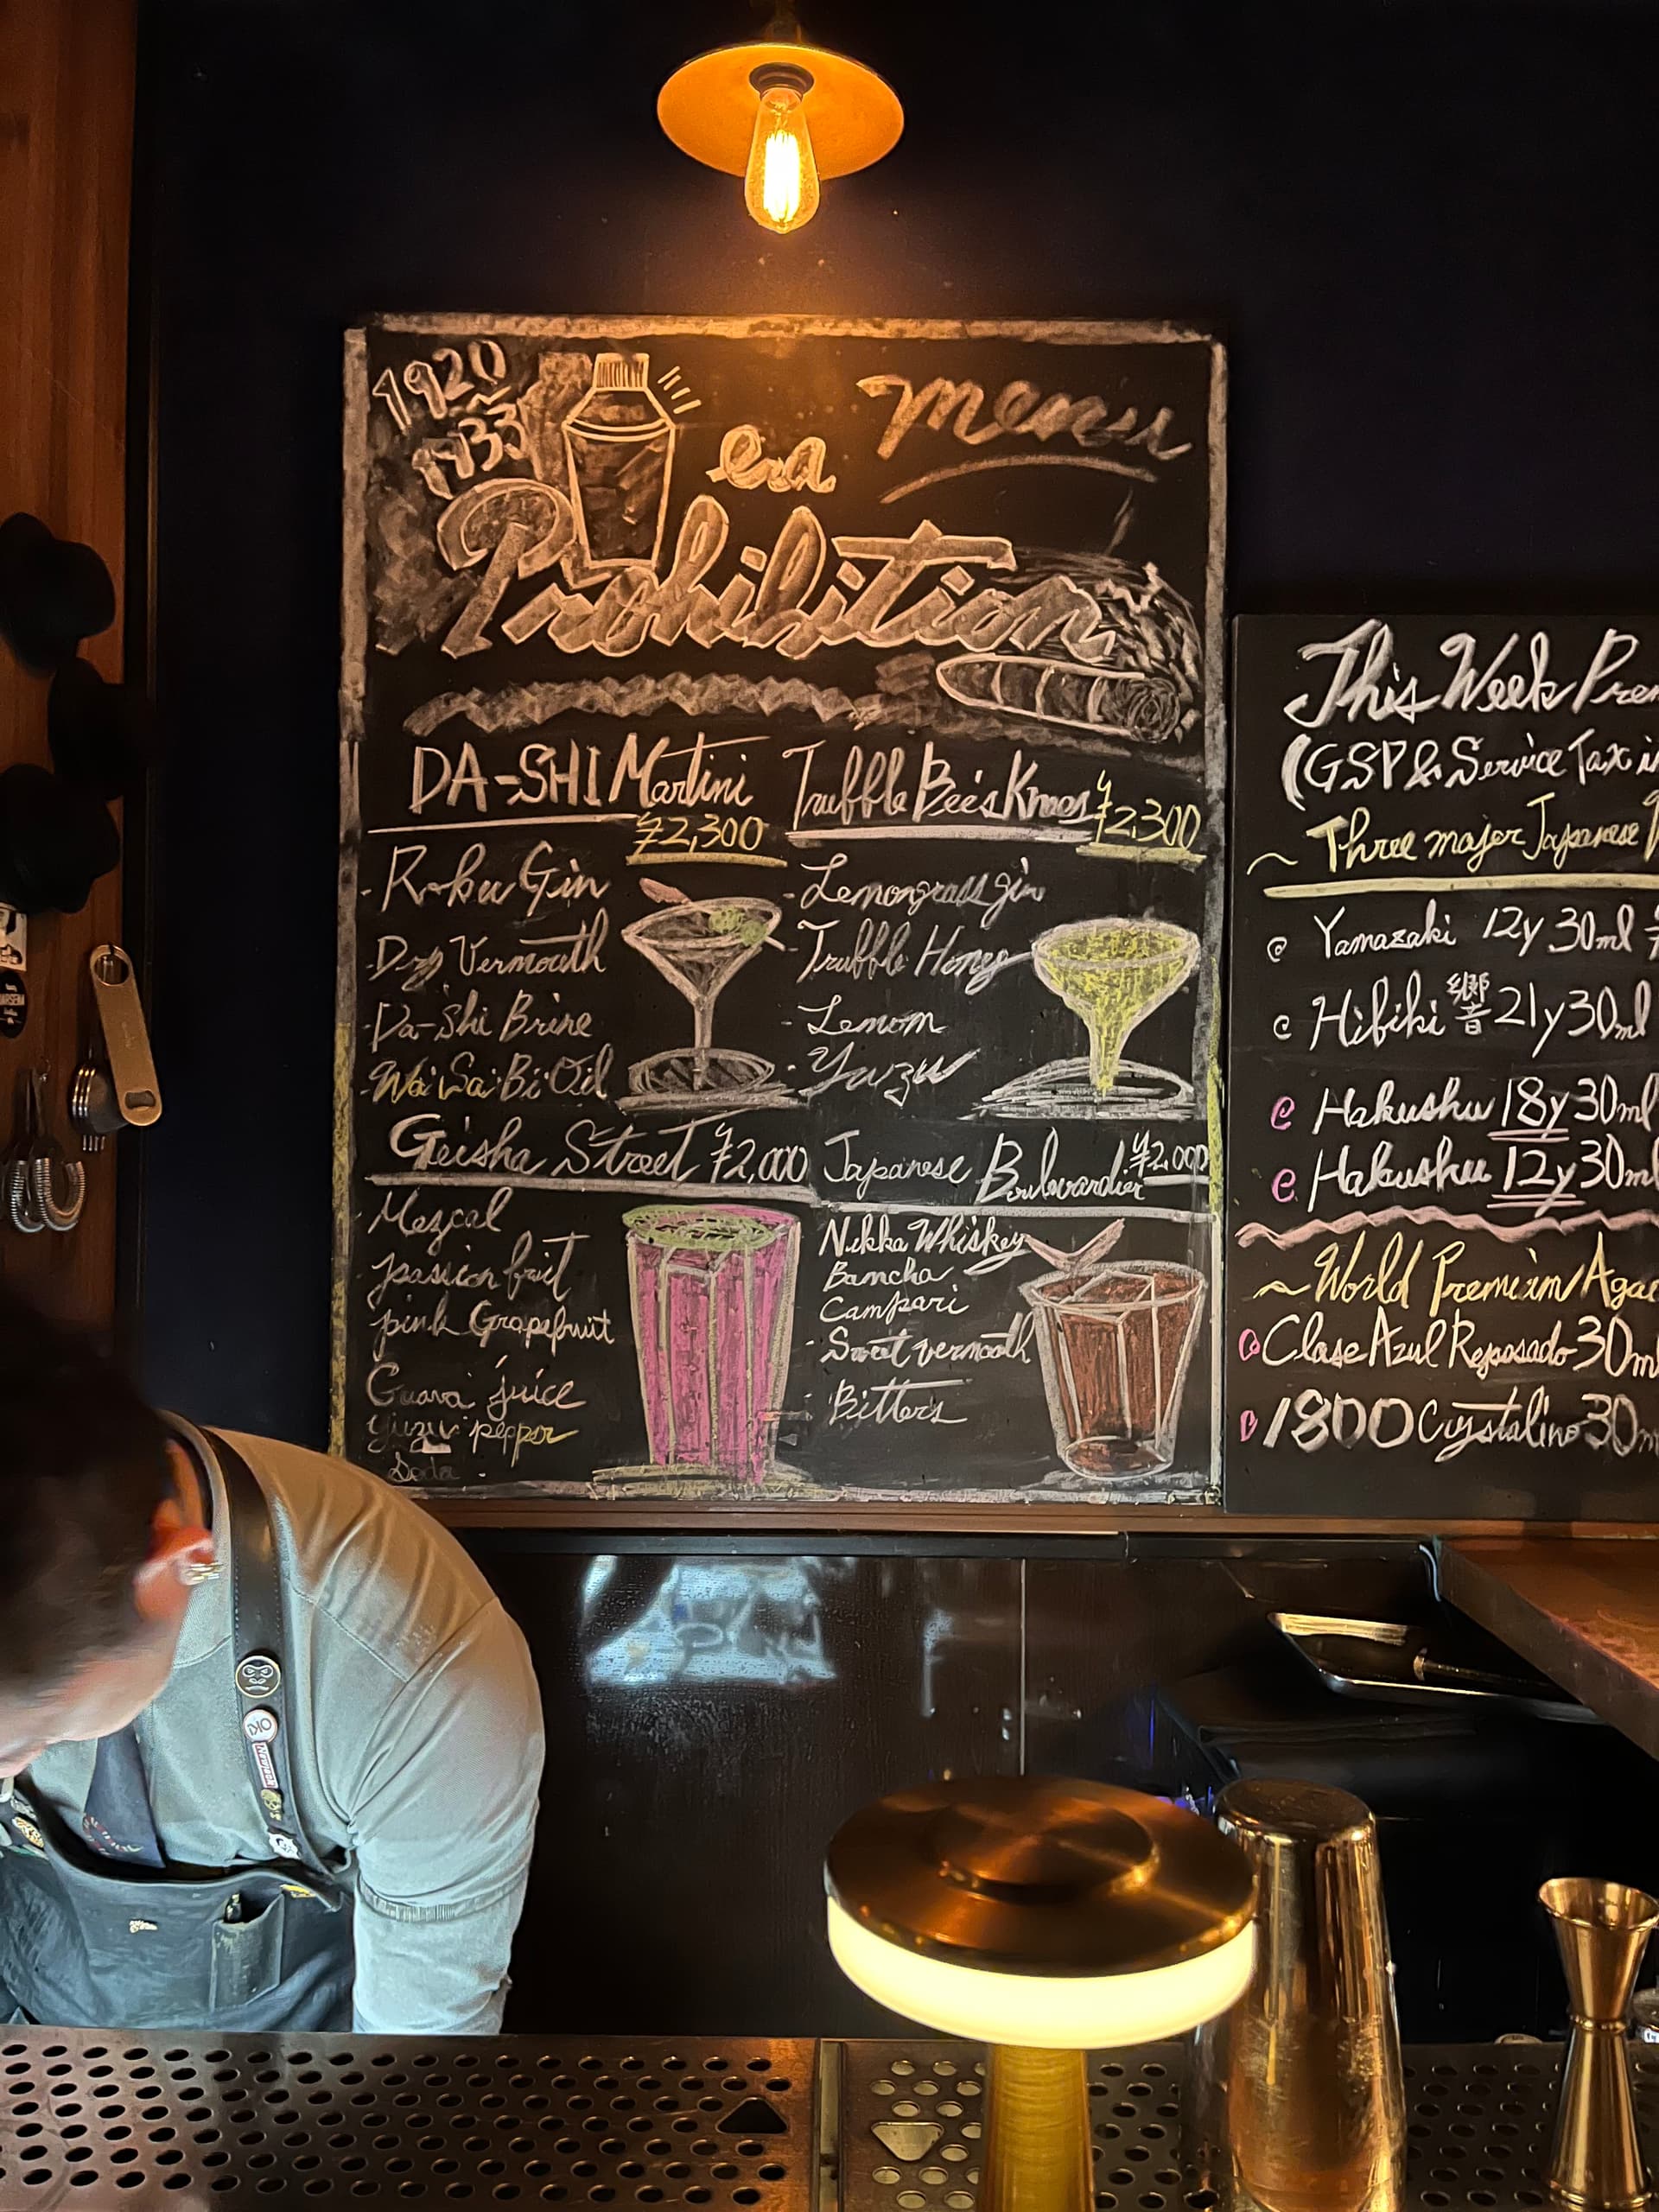 1920
1933
era
menu
Prohibition
DA-SHI Martini
¥2,300
- Roku Gin
- Dry Vermouth
- Da-Shi Brine
- Wa Sa Bi Oil
Truffle Bee's Knees ¥2,300
- Lemongrass gin
- Truffle Honey
- Lemon
- Yuzu
Geisha Street ¥2,000
Mezcal
passion fruit
pink Grapefruit
Guava juice
yuzu pepper
Soda
Japanese Boulevardier ¥2,000
Nikka Whiskey
Bancha
Campari
- Sweet vermouth
- Bitters
This Week Prem
(GSP & Service Tax i
~ Three major Japanese
Yamazaki 12y 30ml ¥
Hibiki 響 21y 30ml
Hakushu 18y 30ml
Hakushu 12y 30ml
~ World Premium Aga
Clase Azul Reposado 30m
1800 Crystalino 30m
OKI